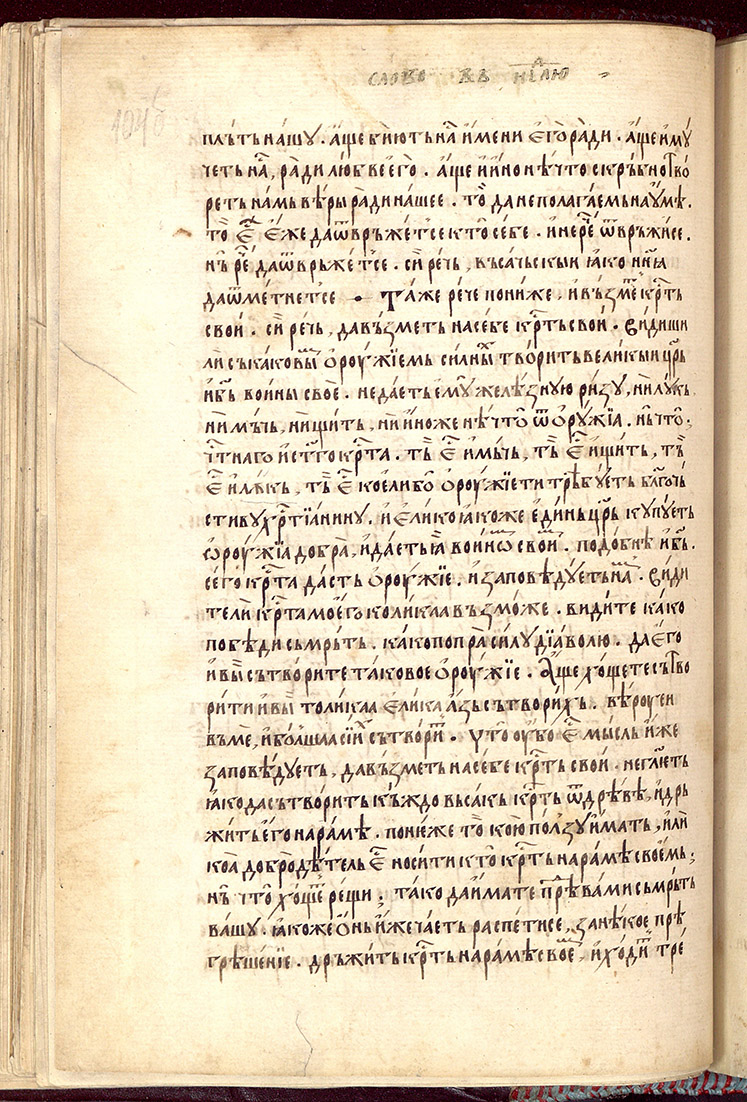 слово въ н҃ⷣелю
104б
пльть нашу . а́ще бїють на҆ и҆мени є҆го ради . а́ще и҆му
четь на̑, ради любве є҆го . а́ще и҆ и҆но нѣчто скръбно тво
реть намь вѣры ради нашее . то̑ да не полагаемь на умѣ .
то̀ є҆ⷭ є҆же да ѿвръжет се кто себе . и не реⷱ ѿвръжи се .
нь реⷱ да ѿврьжет се . си речь , въсачьскыи ꙗко нн҃ꙗ
да ѿметнет се · Таже рече пониже , и възмеⷮ крⷭть
свои . си речь , да възметь на себе крⷭть свои . видиши
ли съ каковыⷨ ѻроужїемь силныⷯ творить великыи цр҃ь
и б҃ь воины свое . не даеть ему желѣзную ризу , ни лукь
ни мьчь , ни щить , ни ино же нѣчто ѿ ѻружїа . нь что .
чⷭтнаго и ст҃го крⷭта . тъ̏ єⷭ и мьчь , тъ̏ єⷭ и щить , тъ̏
єⷭ и лꙋкь , тъ̏ єⷭ кое либо ѻроужїе ти трѣбуеть блг҃очь
стиву хрⷭтїанину . и єлико ꙗкоже єдинь цр҃ь купуеть
ѡроужїа добра , и дасть ꙗ воинѡⷨ своиⷨ . подобнѣ и б҃ь .
сего крⷭта дасть ѻроужїе . и заповѣдуеть наⷨ . види
те ли крⷭта моего коликаа възможе . видите како
побѣди сьмрьть . како попра силу дїаволю . да єго
и вы̏ сътворите таковое ѻроужїе . Аще хощете сътво
рити и вы̏ толикаа єлика азь сътворихъ . вѣроуеи
въ ме , и болша сиⷯ сътвориⷮ . что убо єⷭ мысль иже
заповѣдуеть , да възметь на себе крⷭть свои . не гл҃еть
ꙗко да сътворить къждо вьсакь крⷭть ѿ дрѣвѣ , и дрь
жить єго на рамѣ . понеже то кою ползу имать , или
коа добродѣтель єⷭ носити кто крⷭть на рамѣ своемь ;
нь что хощеⷮ рещи ; тако да имате прⷣѣ вами сьмрьть
вашу . ꙗкоже ѻнь иже чаеть распети се , за нѣкое прѣ
грѣшенїе . дръжить крⷭть на рамѣ своеⷨ , и ходиⷮ тре